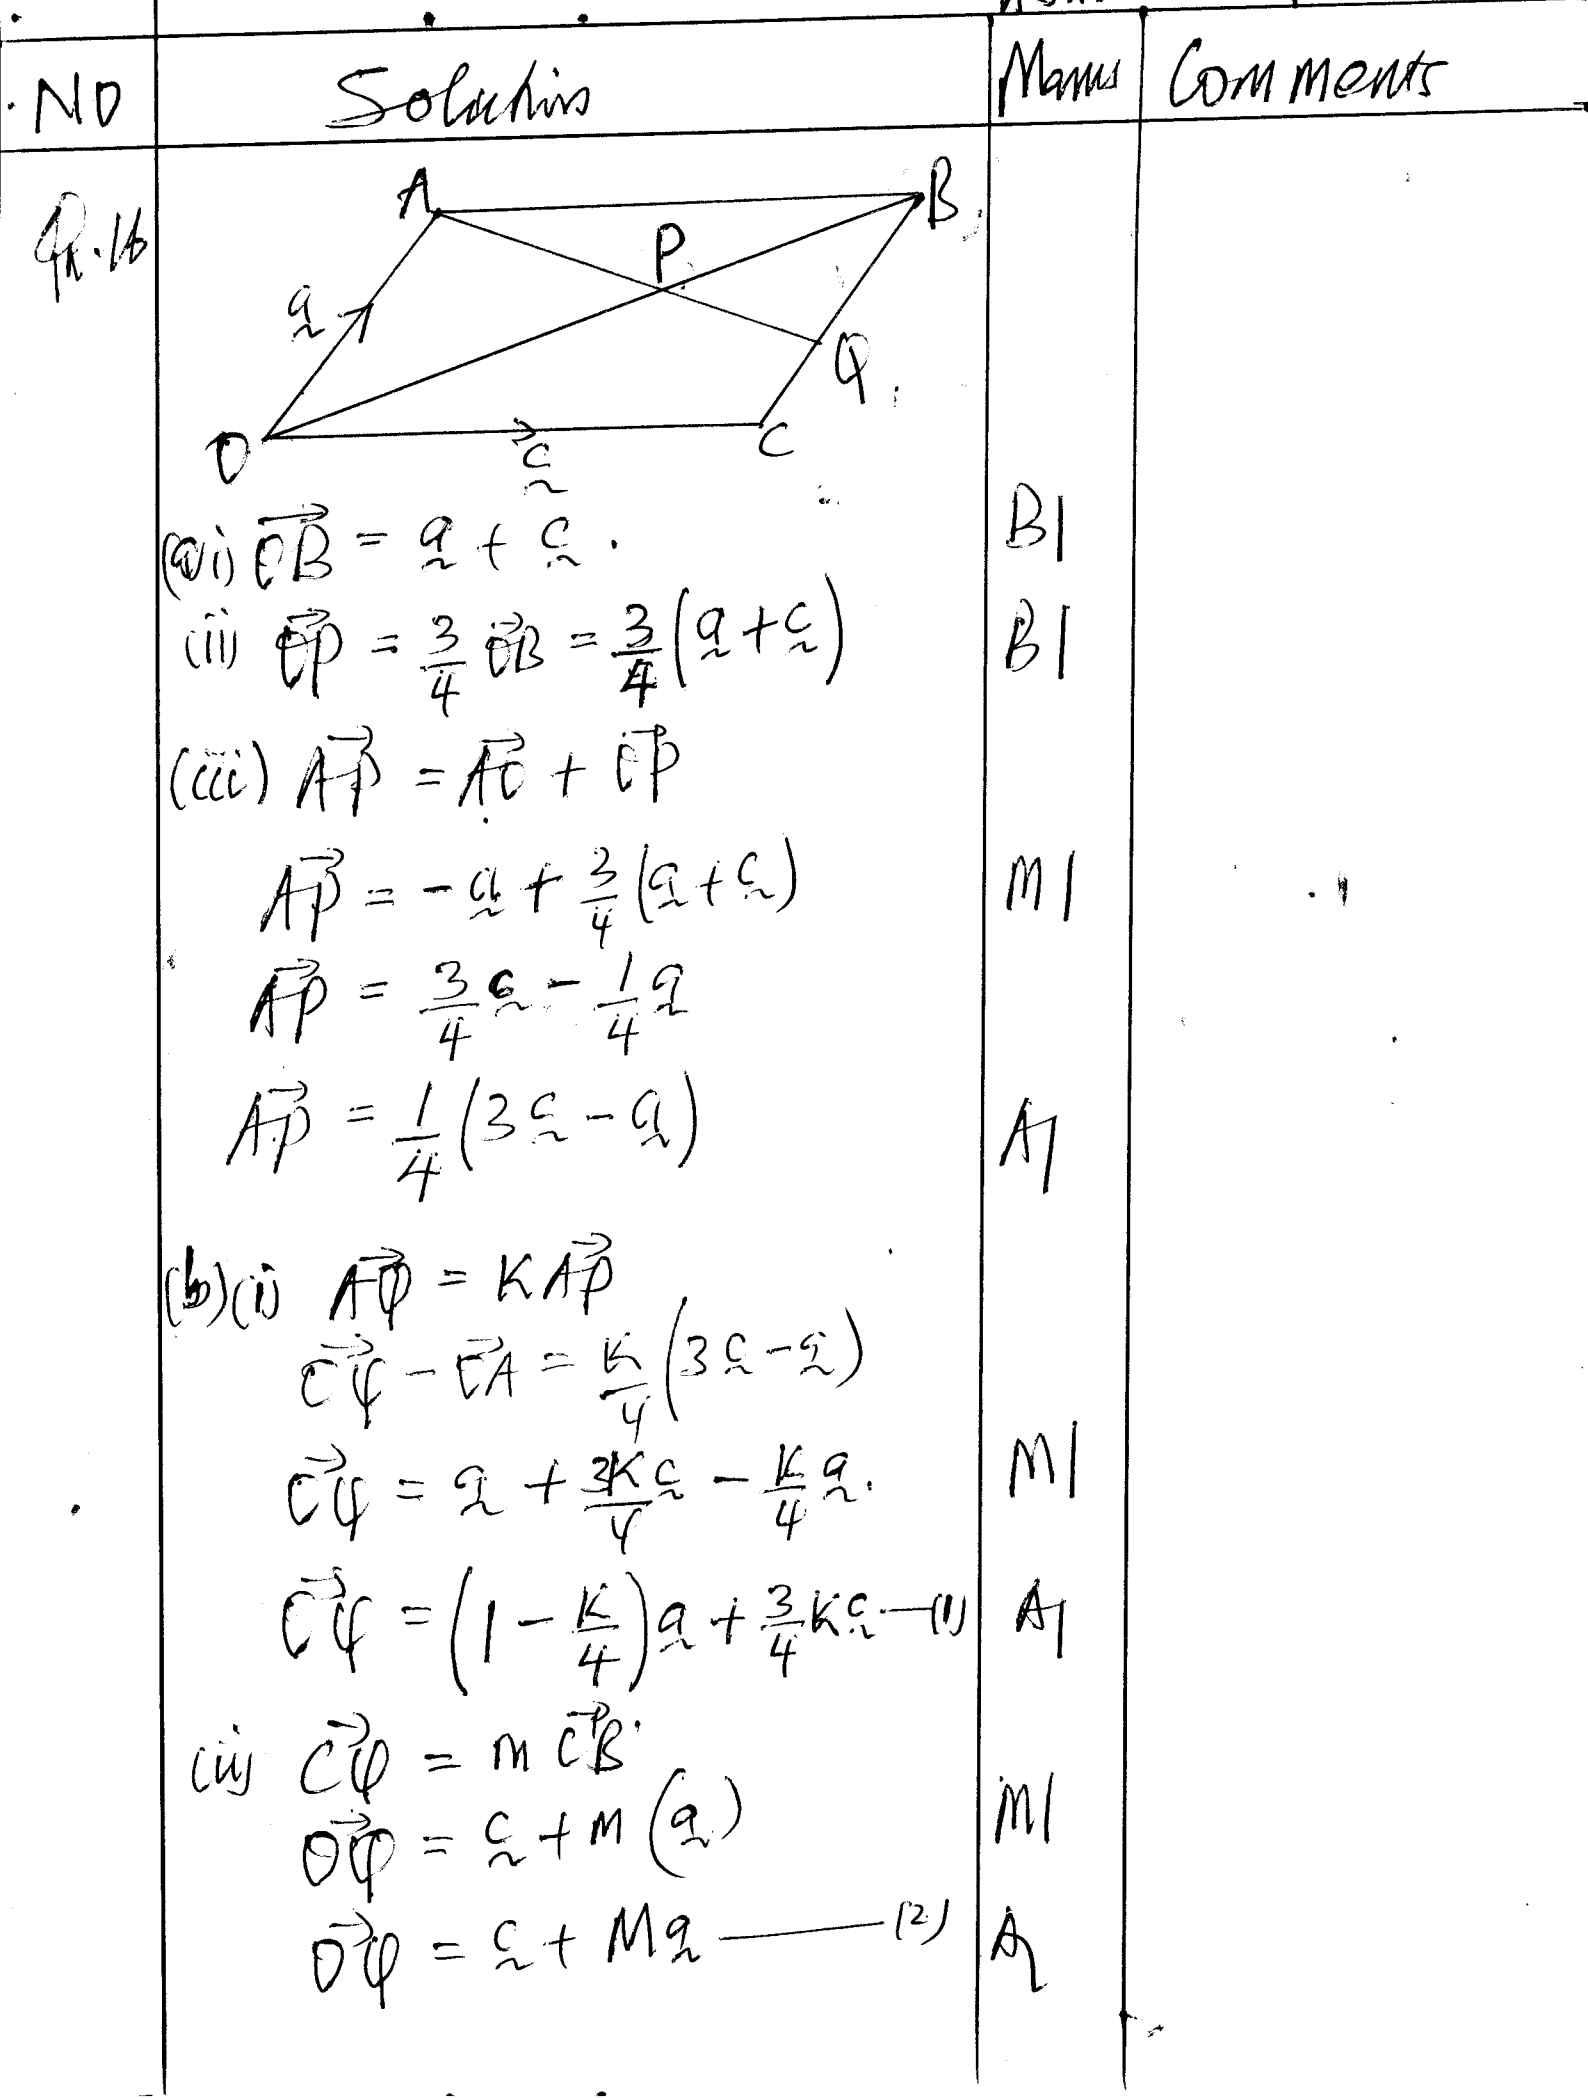 NO Solutions Marks Comments
Qn.16
A B
P
a
Q
O c C
(a)(i) OB = a + c. B1
(ii) OP = 3/4 OB = 3/4 (a + c) B1
(iii) AP = AO + OP
AP = -a + 3/4 (a + c) M1
AP = 3/4 c - 1/4 a
AP = 1/4 (3c - a) A1
(b)(i) AQ = K AP
OQ - OA = K/4 (3c - a)
OQ = a + 3K/4 c - K/4 a. M1
OQ = (1 - K/4) a + 3/4 K c. —(1) A1
(ii) CQ = m CB.
OQ = c + M (a) M1
OQ = c + Ma —— (2) A1